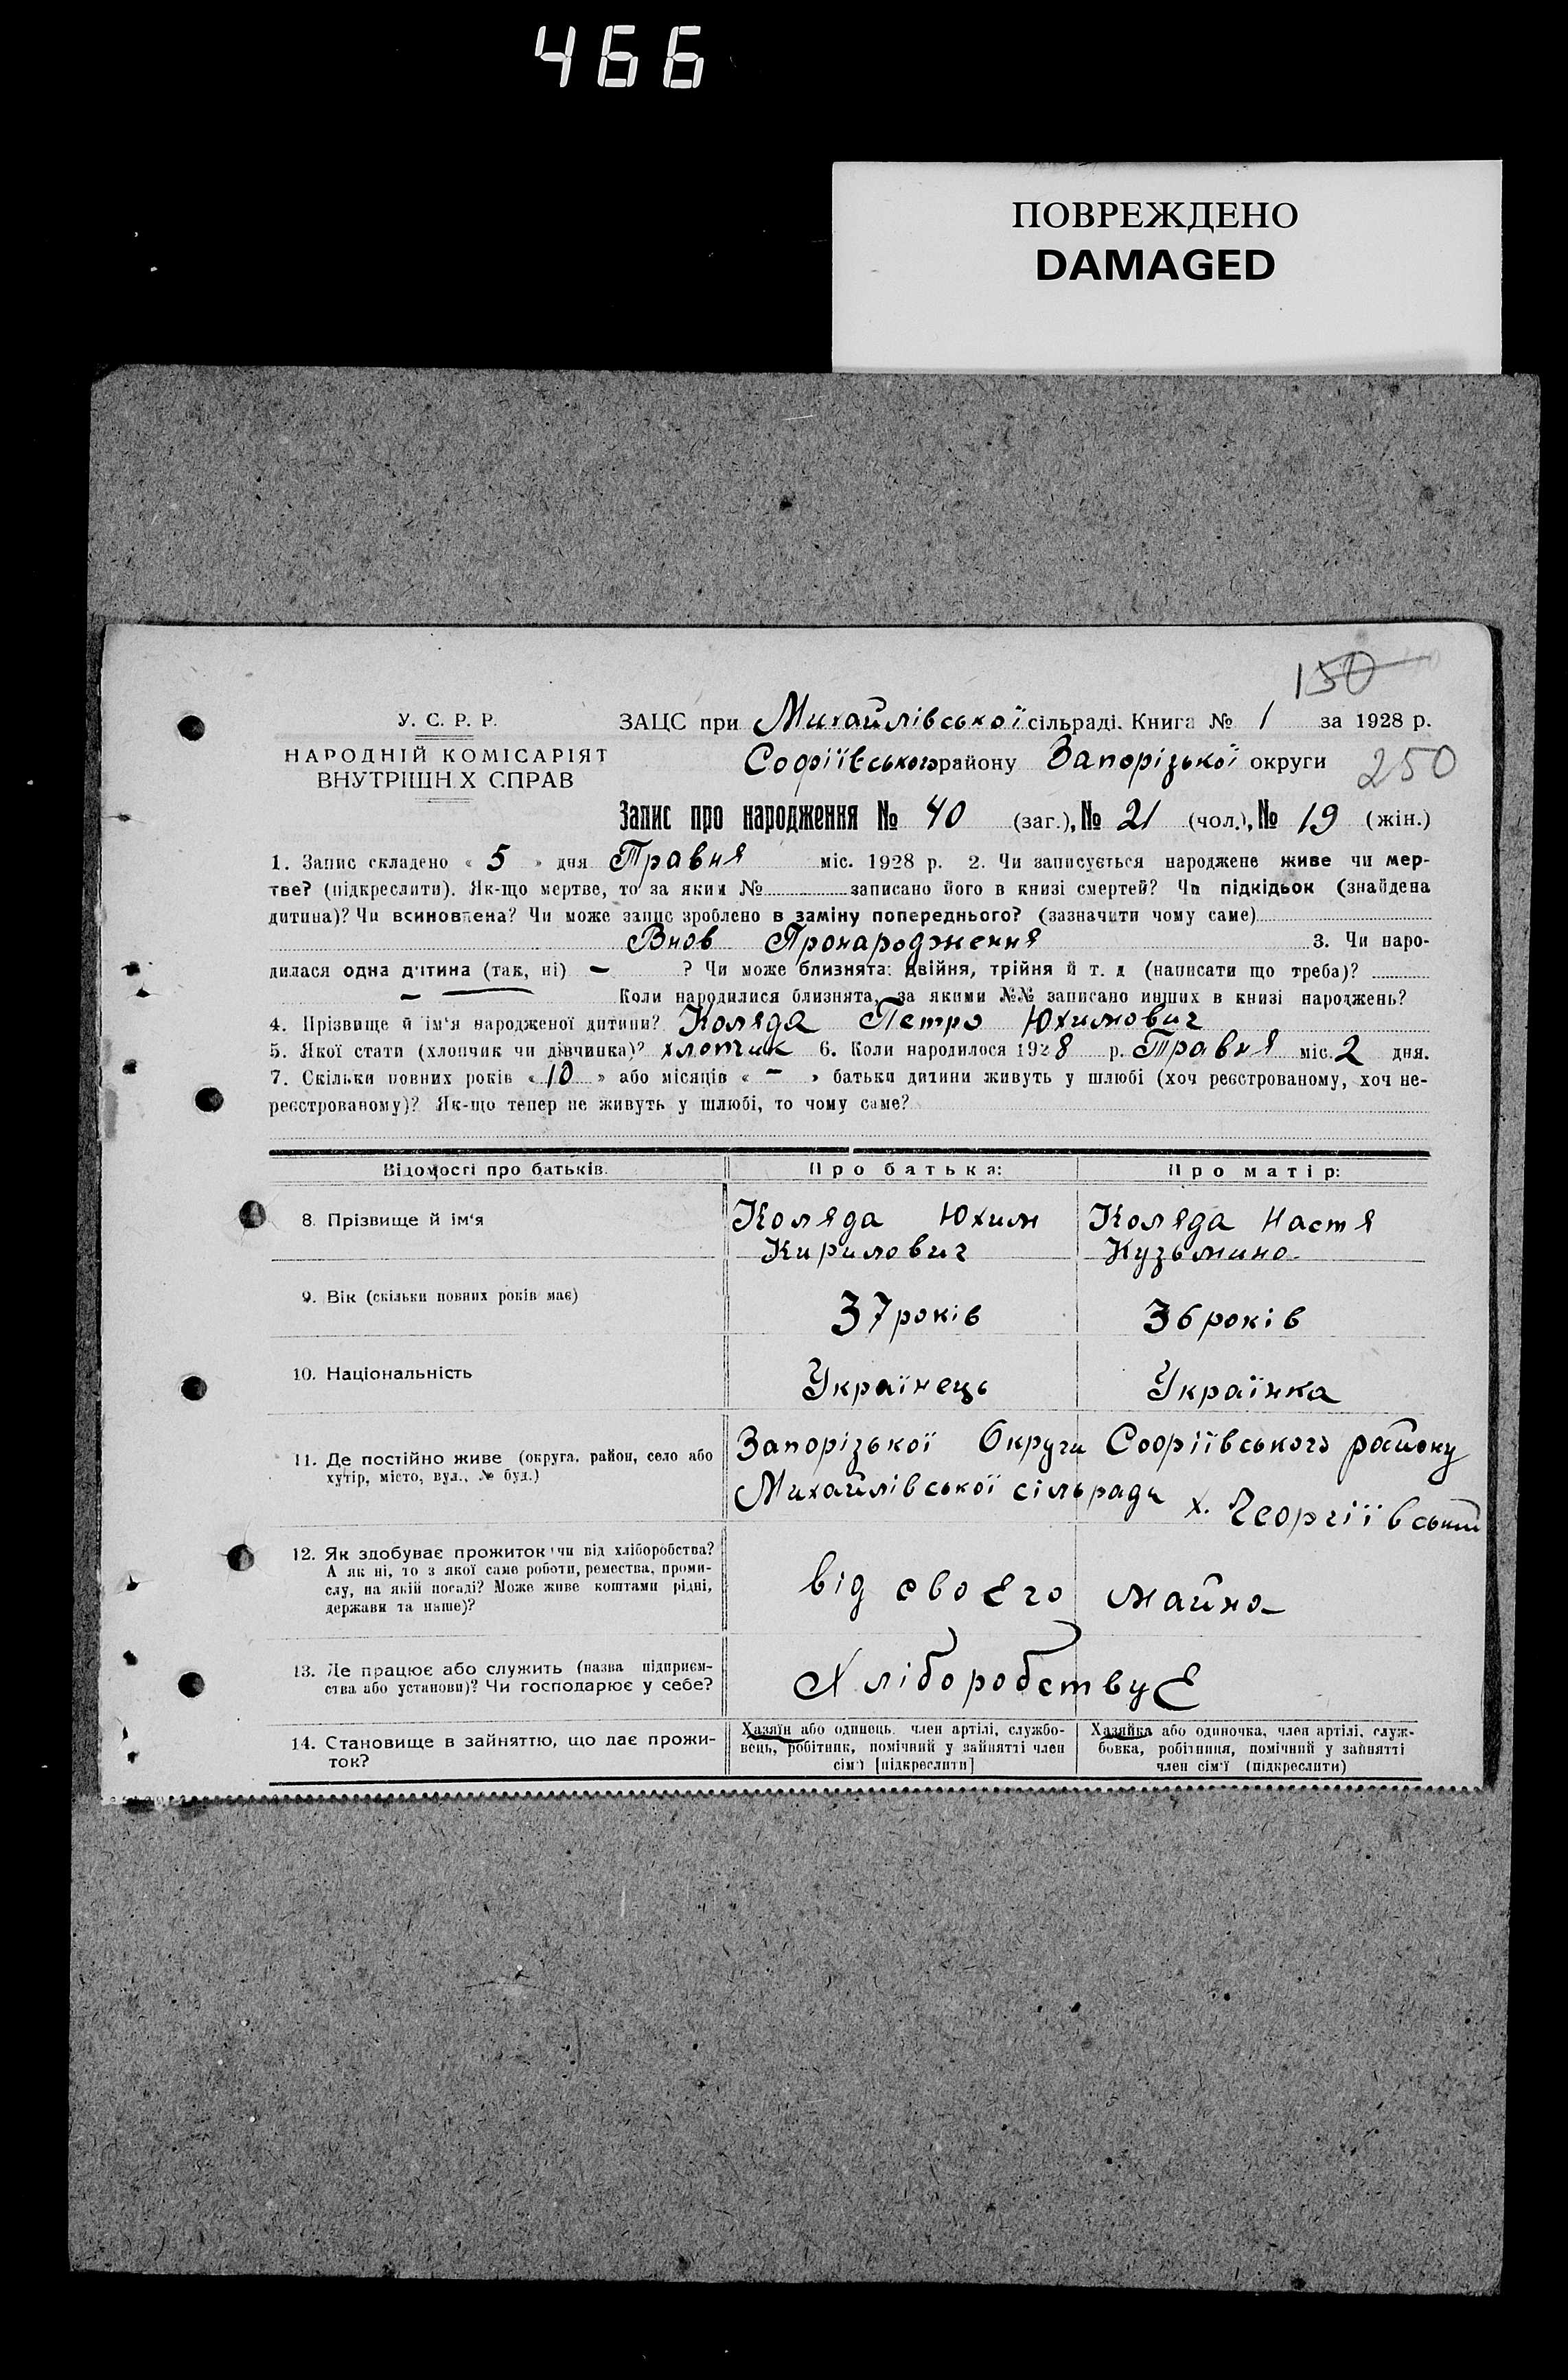 466
ПОВРЕЖДЕНО
DAMAGED
150
У. С. Р. Р.
НАРОДНІЙ КОМІСАРІЯТ
ВНУТРІШН.Х СПРАВ
ЗАЦС при Михайлівської сільраді. Книга № 1 за 1928 р.
Софіївського району Запорізької округи
250
Запис про народження № 40 (заг.), № 21 (чол.), № 19 (жін.)
1. Запис складено « 5 » дня Травня міс. 1928 р. 2. Чи записується народжене живе чи мер-
тве? (підкреслити). Як-що мертве, то за яким № записано його в книзі смертей? Чи підкідьок (знайдена
дитина)? Чи всиновлена? Чи може запис зроблено в заміну попереднього? (зазначити чому саме)
Внов Пронародження 3. Чи наро-
дилася одна дитина (так, ні) — ? Чи може близнята: двійня, трійня й т. д (написати що треба)?
— Коли народилися близнята, за якими №№ записано инших в книзі народжень?
4. Прізвище й ім'я народженої дитини? Коляда Петро Юхимович
5. Якої стати (хлопчик чи дівчинка)? хлопчик 6. Коли народилося 1928 р. Травня міс. 2 дня.
7. Скільки повних років « 10 » або місяців « — » батьки дитини живуть у шлюбі (хоч реєстрованому, хоч не-
реєстрованому)? Як-що тепер не живуть у шлюбі, то чому саме?
Відомості про батьків. Про батька: Про матір:
8. Прізвище й ім'я Коляда Юхим Коляда Настя
Кирилович Кузьмино
9. Вік (скільки повних років має) 37 років 36 років
10. Національність Українець Українка
11. Де постійно живе (округа, район, село або Запорізької Округи Софріївського району
хутір, місто, вул., № буд.) Михайлівської сільради х. Георгіївський
12. Як здобуває прожиток чи від хліборобства?
А як ні, то з якої саме роботи, ремества, проми-
слу, на якій посаді? Може живе коштами рідні,
держави та инше)? від своєго майна
13. Де працює або служить (назва підприєм-
ства або установи)? Чи господарює у себе? Хліборобствує
14. Становище в зайняттю, що дає прожи-
ток?
Хазяїн або одинець, член артілі, службо-
вець, робітник, помічний у зайнятті член
сім'ї [підкреслити]
Хазяйка або одиночка, член артілі, служ-
бовка, робітниця, помічний у зайнятті
член сім'ї (підкреслити)